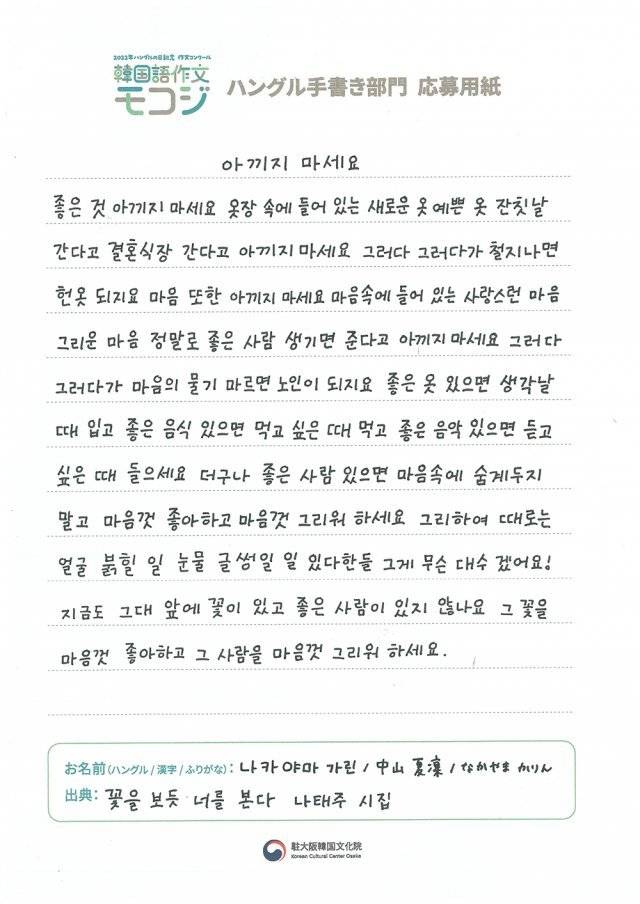 2022年ハングルの日記念 作文コンクール
韓国語作文
モコジ
ハングル手書き部門 応募用紙
아끼지 마세요
좋은 것 아끼지 마세요 옷장 속에 들어 있는 새로운 옷 예쁜 옷 잔칫날
간다고 결혼식장 간다고 아끼지 마세요 그러다 그러다가 철지나면
헌옷 되지요 마음 또한 아끼지 마세요 마음속에 들어 있는 사랑스런 마음
그리운 마음 정말로 좋은 사람 생기면 준다고 아끼지 마세요 그러다
그러다가 마음의 물기 마르면 노인이 되지요 좋은 옷 있으면 생각날
때 입고 좋은 음식 있으면 먹고 싶은 때 먹고 좋은 음악 있으면 듣고
싶은 때 들으세요 더구나 좋은 사람 있으면 마음속에 숨계두지
말고 마음껏 좋아하고 마음껏 그리워 하세요 그리하여 때로는
얼굴 붉힐 일 눈물 글썽일 일 있다한들 그게 무슨 대수 겠어요!
지금도 그대 앞에 꽃이 있고 좋은 사람이 있지 않나요 그 꽃을
마음껏 좋아하고 그 사람을 마음껏 그리워 하세요.
お名前(ハングル / 漢字 / ふりがな): 나카야마 가린 / 中山 夏凜 / なかやま かりん
出典: 꽃을 보듯 너를 본다 나태주 시집
駐大阪韓国文化院
Korean Cultural Center Osaka